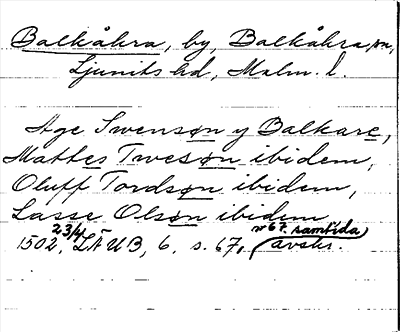 Balkåkra, by, Balkåkra sn,
Ljunits hd, Malm. l.
Age Swensøn y Balkare,
Mattes Twesøn ibidem,
Oluff Tordsøn ibidem,
Lasse Olsøn ibidem
1502 23/4 LÄUB, 6, s. 67, nr 67. samtida avskr.